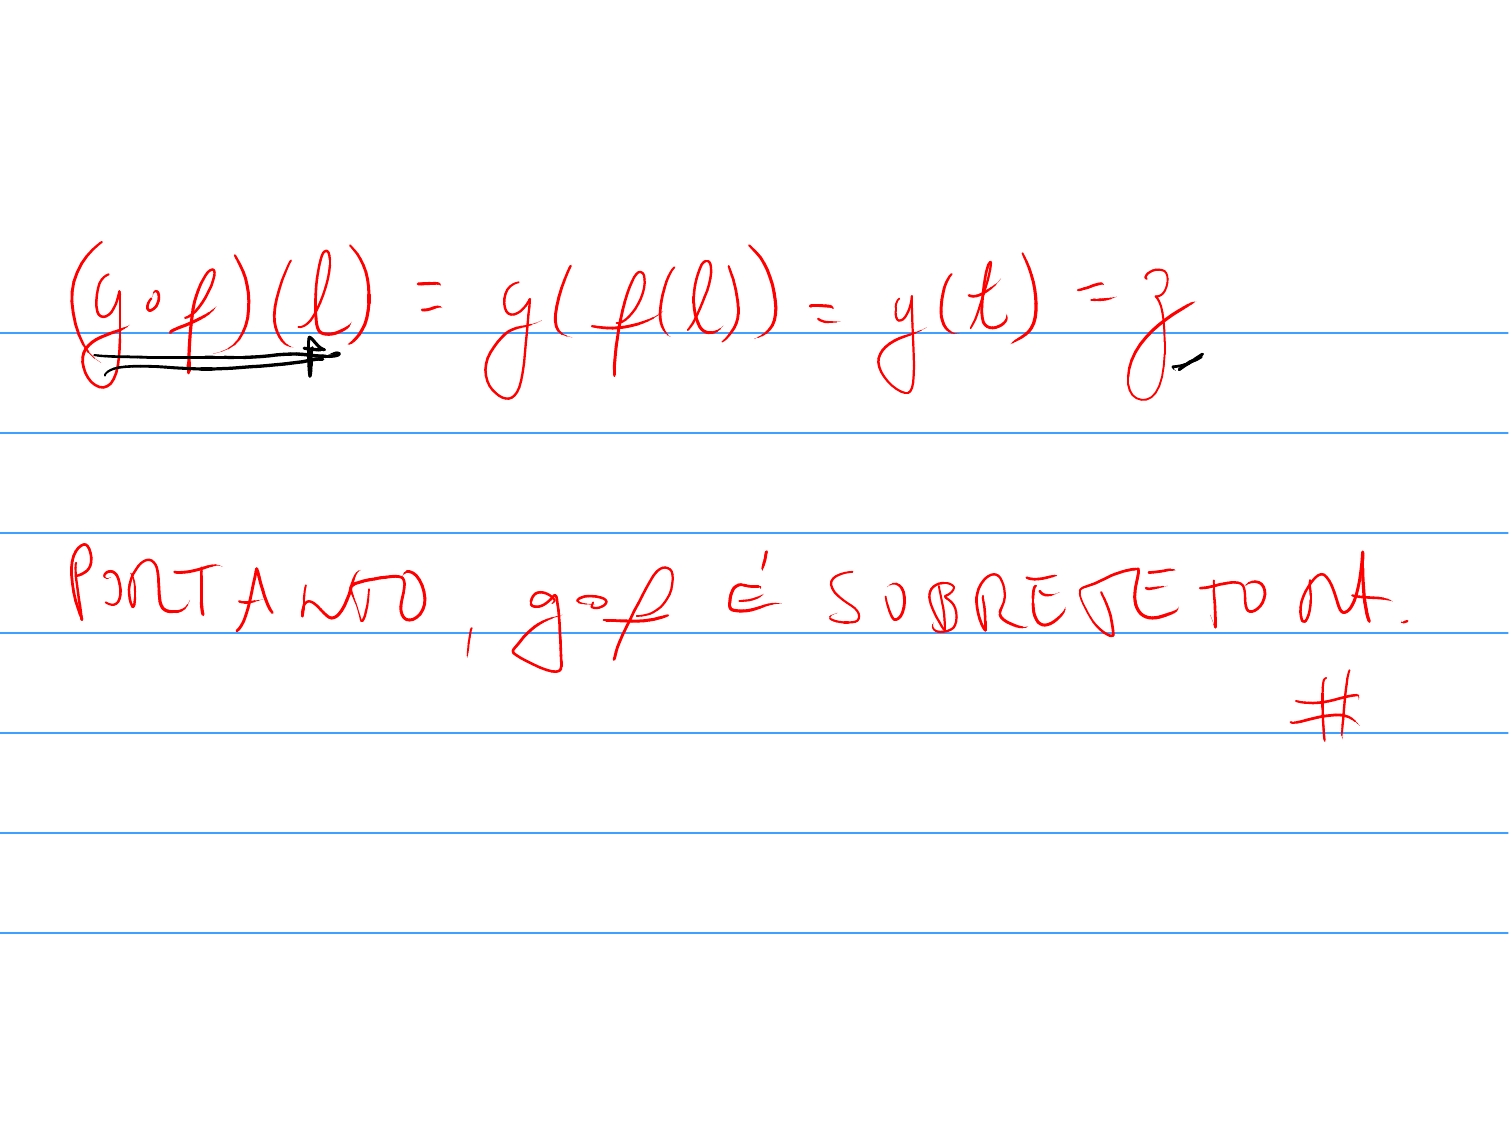 (g∘f)(l) = g(f(l)) = g(t) = z
PORTANTO, g∘f É SOBREJETORA.
#